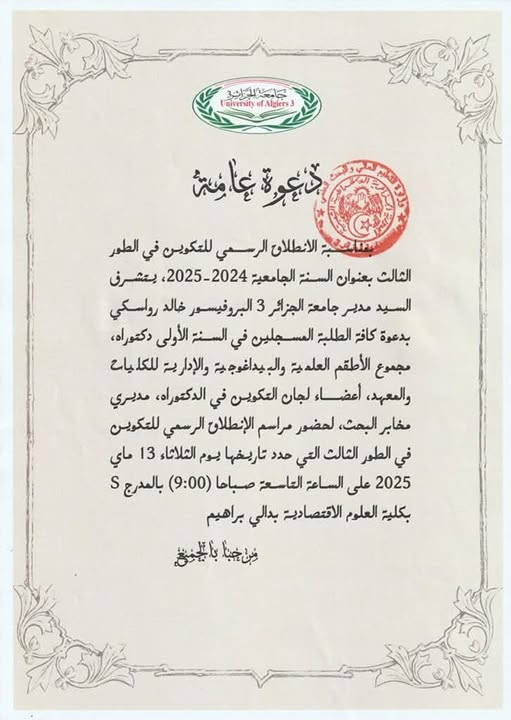 جامعة الجزائر 3
University of Algiers 3
دعوة عامة
بمناسبة الانطلاق الرسمي للتكوين في الطور
الثالث بعنوان السنة الجامعية 2024-2025، يتشرف
السيد مدير جامعة الجزائر 3 البروفيسور خالد رواسكي
بدعوة كافة الطلبة المسجلين في السنة الأولى دكتوراه،
مجموع الأطقم العلمية والبيداغوجية والإدارية للكليات
والمعهد، أعضاء لجان التكوين في الدكتوراه، مديري
مخابر البحث، لحضور مراسم الإنطلاق الرسمي للتكوين
في الطور الثالث التي حدد تاريخها يوم الثلاثاء 13 ماي
2025 على الساعة التاسعة صباحا (9:00) بالمدرج S
بكلية العلوم الاقتصادية بدالي براهيم
مرحبا بالجميع